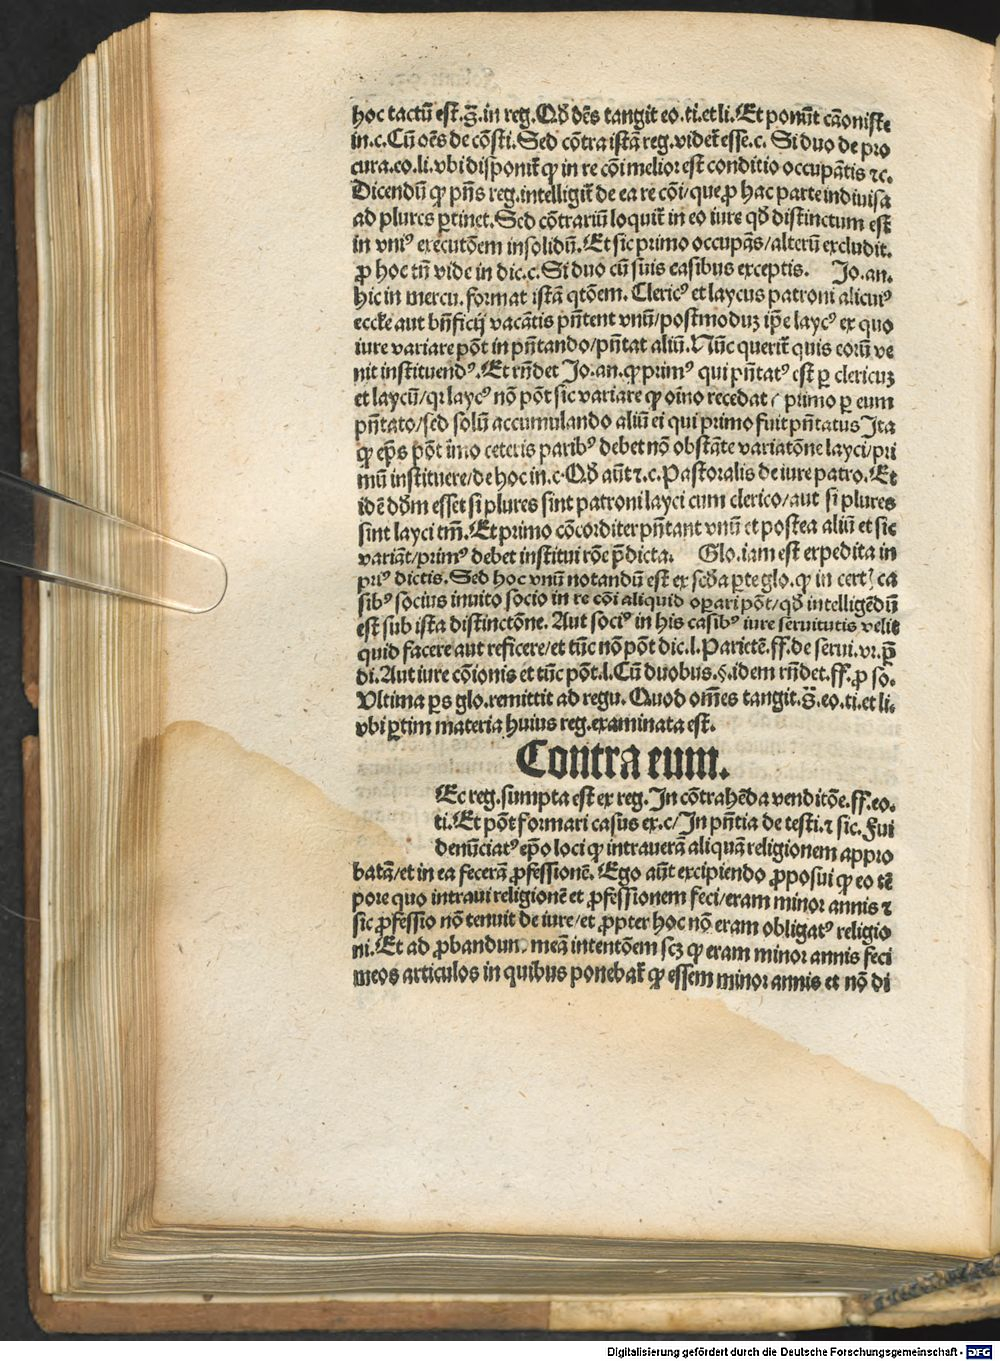 hoc tactū est.s̄.in reg.Qd̄ oēs tangit eo.ti.et li.Et ponūt cāoniste
in.c.Cū oēs de cōsti.Sed cōtra istā reg.videt̄ esse.c. Si duo de pro
cura.eo.li.vbi disponit̄ ꝙ in re cōi melior est conditio occupātis ⁊c.
Dicendū ꝙ pn̄s reg.intelligit̄ de ea re cōi/que ꝓ hac parte indiuisa
ad plures ꝑtinet.Sed cōtrariū loquit̄ in eo iure qd̄ distinctum est
in vniꝰ executōem insolidū.Et sic primo occupās/alterū excludit.
ꝓ hoc tn̄ vide in dic.c.Si duo cū suis casibus exceptis. Jo.an.
hic in mercu.format istā qtōem.Clericꝰ et laycus patroni alicuiꝰ
eccl̄e aut bn̄ficij vacātis pn̄tent vnū/postmoduꝫ ip̄e laycꝰ ex quo
iure variare pōt in pn̄tando/pn̄tat aliū.Nūc querit̄ quis eorū ve
nit instituendꝰ.Et rn̄det Jo.an.ꝙ primꝰ qui pn̄tatꝰ est ꝑ clericuꝫ
et laycū/qꝛ laycꝰ nō pōt sic variare ꝙ oīno recedat a primo ꝑ eum
pn̄tato/sed solū accumulando aliū ei qui primo fuit pn̄tatus Jta
ꝙ ep̄s pōt īmo ceteris paribꝰ debet nō obstāte variatōne layci/pri
mū instituere/de hoc in.c.Qd̄ aūt ⁊.c.Pastoralis de iure patro.Et
idē dd̄m esset si plures sint patroni layci cum clerico/aut si plures
sint layci tm̄.Et primo cōcorditer pn̄tant vnū et postea aliū et sic
variāt/primꝰ debet institui rōe p̄dicta. Glo.iam est expedita in
priꝰ dictis.Sed hoc vnū notandū est ex scd̄a ꝑte glo.ꝙ in certꝭ ca
sibꝰ socius inuito socio in re cōi aliquid oꝑari pōt/qd̄ intelligēdū
est sub ista distinctōne.Aut sociꝰ in his casibꝰ iure seruitutis velit
quid facere aut reficere/et tūc nō pōt dic.l.Parietē.ff.de serui.vr.p̄
di.Aut iure cōionis et tūc pōt.l.Cū duobus.§.idem rn̄det.ff.ꝓ so.
Vltima ꝑs glo.remittit ad regu.Quod om̄es tangit.s̄.eo.ti.et li.
vbi ꝑtim materia huius reg.examinata est.
Contra eum.
Ec reg.sumpta est ex reg.Jn cōtrahēda venditōe.ff.eo.
ti.Et pōt formari casus ex.c/Jn pn̄tia de testi.⁊ sic.Fui
denūciatꝰ ep̄o loci ꝙ intraueram aliquā religionem appro
batā/et in ea fecerā ꝓfessionē.Ego aūt excipiendo ꝓposui ꝙ eo tē
pore quo intraui religionē et ꝓfessionem feci/eram minor annis ⁊
sic ꝓfessio nō tenuit de iure/et ꝓpter hoc nō eram obligatꝰ religio
ni.Et ad ꝓbandum meā intentōem scꝫ ꝙ eram minor annis feci
meos articulos in quibus ponebat̄ ꝙ essem minor annis et nō di
Digitalisierung gefördert durch die Deutsche Forschungsgemeinschaft - DFG